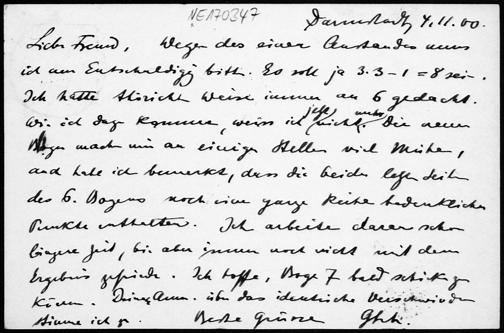 NE170347
Darmstadt, 4.11.00.
Lieber Freund, Wegen des einen Anstandes muss
ich um Entschuldigg bitten. Es soll ja 3·3-1=8 sein.
Ich hatte thörichter Weise immer an 6 gedacht.
Wie ich dazu komme, weiss ich jetzt nicht mehr. Die neuen
Bogen machen mir an einigen Stellen viel Mühe,
und habe ich bemerkt, dass die beiden letzten Seiten
des 6. Bogens noch eine ganze Reihe bedenklicher
Punkte enthalten. Ich arbeite daran schon
längere Zeit, bin aber immer noch nicht mit dem
Ergebnis zufrieden. Ich hoffe, Bogen 7 bald schicken zu
können. Deiner Anm. über das identische Verschwinden
stimme ich zu. Beste Grüsse